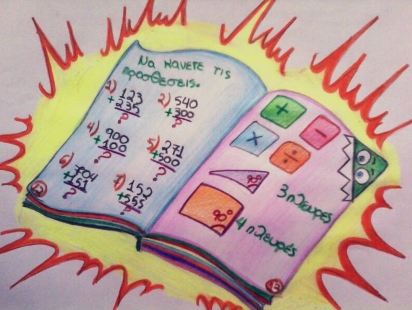 Να κάνετε τις
προσθέσεις.
1) 123 + 235 ?
2) 540 + 300 ?
4) 900 + 100 ?
5) 271 + 500 ?
6) 704 + 251 ?
7) 152 + 253 ?
+ -
× ÷
90°
3 πλευρές
90°
4 πλευρές